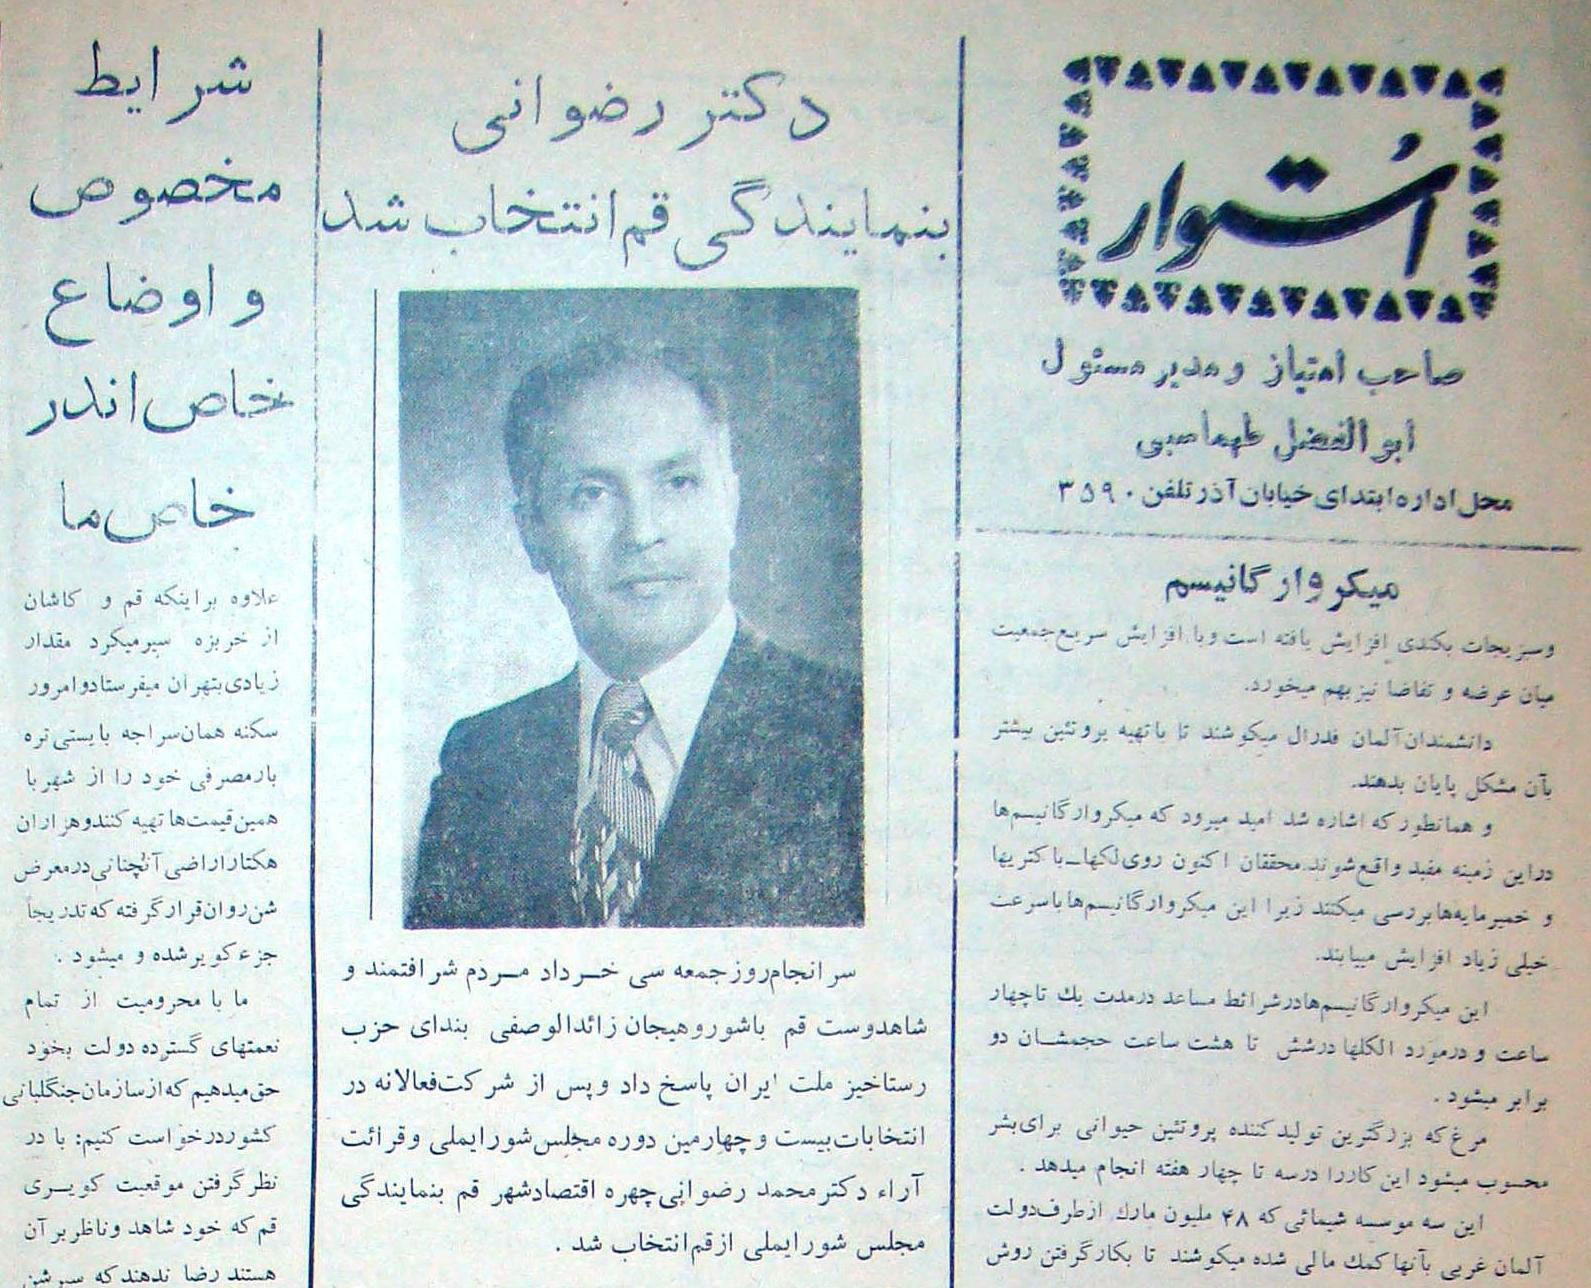 استوار
صاحب امتیاز و مدیر مسئول
ابوالفضل طهماسبی
محل اداره ابتدای خیابان آذر تلفن ۳۵۹۰
میکروارگانیسم
وسبزیجات بکندی افزایش یافته است و با افزایش سریع جمعیت
میان عرضه و تقاضا نیز بهم میخورد.
دانشمندان آلمان فدرال میکوشند تا با تهیه پروتئین بیشتر
بآن مشکل پایان بدهند.
و همانطور که اشاره شد امید میرود که میکروارگانیسم‌ها
دراین زمینه مفید واقع شوند. محققان اکنون روی لکها ـ باکتریها
و خمیرمایه‌ها بررسی میکنند زیرا این میکروارگانیسم‌ها باسرعت
خیلی زیاد افزایش مییابند.
این میکروارگانیسم‌ها درشرائط مساعد درمدت یك تا چهار
ساعت و درمورد الکلها درشش تا هشت ساعت حجمشان دو
برابر میشود .
مرغ که بزرگترین تولید کننده پروتئین حیوانی برای بشر
محسوب میشود این کار را درسه تا چهار هفته انجام میدهد .
این سه موسسه شیمائی که ۴۸ ملیون مارك ازطرف دولت
آلمان غربی بآنها کمك مالی شده میکوشند تا بکار گرفتن روش
دکتر رضوانی
بنمایندگی قم انتخاب شد
سرانجام روز جمعه سی خرداد مردم شرافتمند و
شاهدوست قم باشور و هیجان زائدالوصفی بندای حزب
رستاخیز ملت ایران پاسخ داد و پس از شرکت فعالانه در
انتخابات بیست و چهارمین دوره مجلس شورایملی و قرائت
آراء دکتر محمد رضوانی چهره اقتصاد شهر قم بنمایندگی
مجلس شورایملی از قم انتخاب شد .
شرایط
مخصوص
و اوضاع
خاص اندر
خاص ما
علاوه بر اینکه قم و کاشان
از خربزه سیر میکرد مقدار
زیادی بتهران میفرستاد و امروز
سکنه همان سراجه بایستی تره
بار مصرفی خود را از شهر با
همین قیمت‌ها تهیه کنند و هزاران
هکتار اراضی آنچنانی در معرض
شن روان قرار گرفته که تدریجاً
جزء کویر شده و میشود .
ما با محرومیت از تمام
نعمتهای گسترده دولت بخود
حق میدهیم که از سازمان جنگلبانی
کشور درخواست کنیم: با در
نظر گرفتن موقعیت کویری
قم که خود شاهد و ناظر بر آن
هستند رضا ندهند که سیر شن